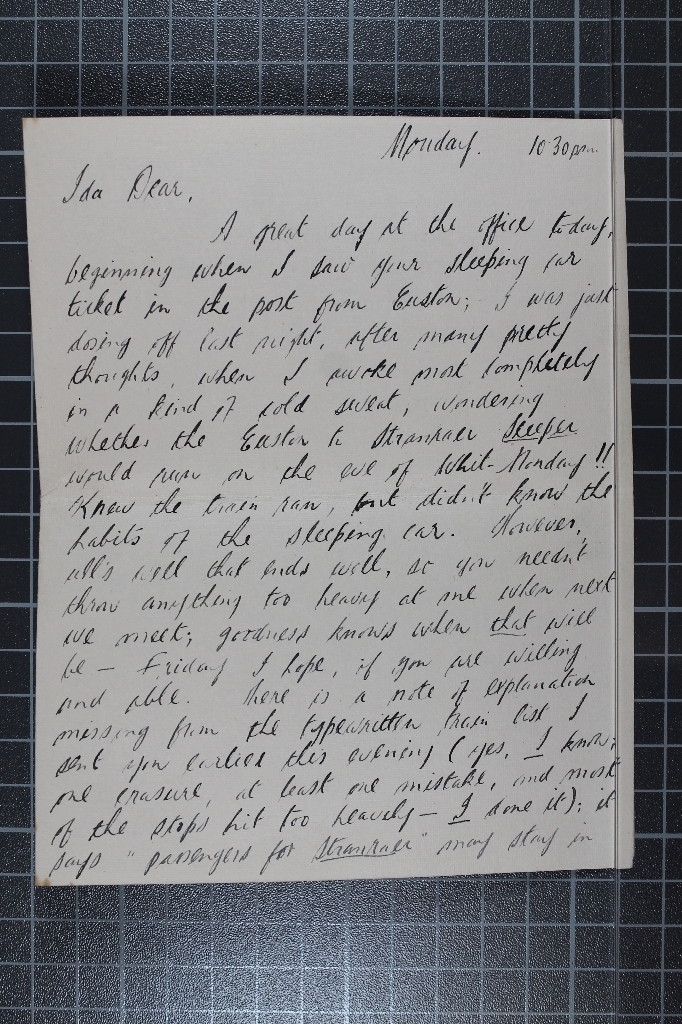 Monday. 10.30pm.
Ida Dear,
A great day at the office today,
beginning when I saw your sleeping car
ticket in the post from Euston; I was just
dosing off last night, after many pretty
thoughts, when I awoke most completely
in a kind of cold sweat, wondering
whether the Euston to Stranraer Sleeper
would run on the eve of Whit-Monday!!
Knew the train ran, but didn't know the
habits of the sleeping car. However,
all's well that ends well, so you needn't
throw anything too heavy at me when next
we meet; goodness knows when that will
be — Friday I hope, if you are willing
and able. There is a note of explanation
missing from the typewritten train list I
sent you earlier this evening (yes, I know;
one erasure, at least one mistake, and most
of the stops hit too heavely — I done it); it
says "passengers for Stranraer" may stay in